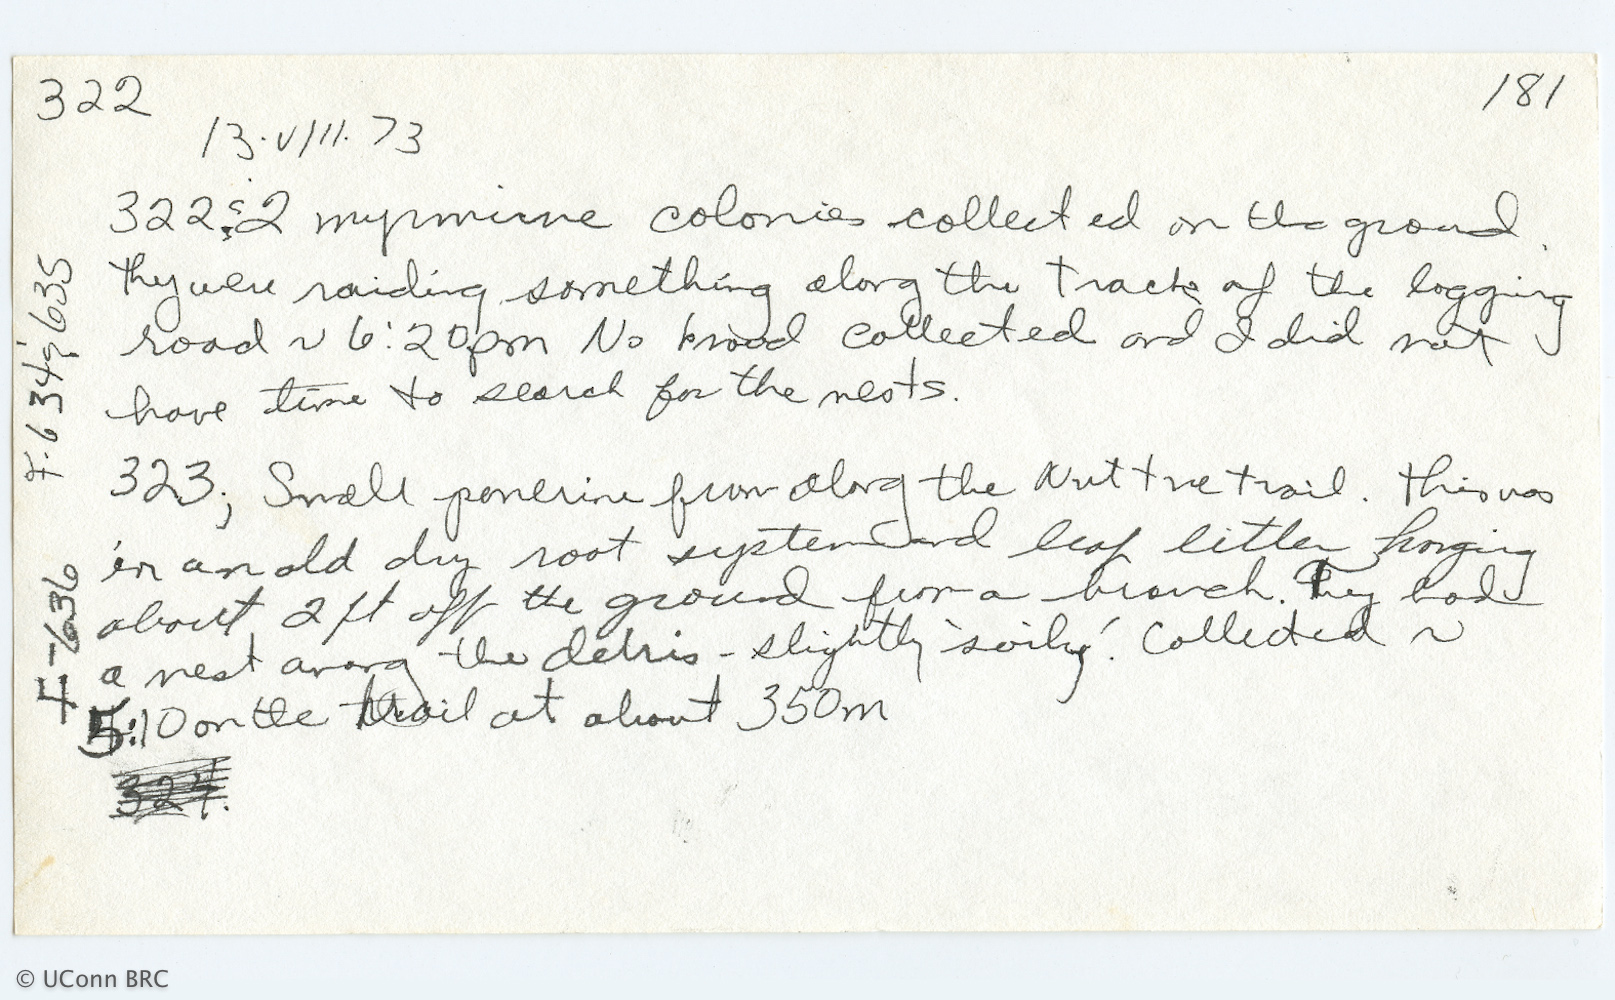 322
181
13.VIII.73
322; 2 myrmicine colonies collected on the ground.
They were raiding something along the track of the logging
road ~ 6:20pm No brood collected and I did not
have time to search for the nests.
323; Small ponerine from along the Nut tree trail. This was
in an old dry root system and leaf litter hanging
about 2 ft off the ground from a branch. They had
a nest among the debris - slightly 'soily'. Collected ~
5:10 on the trail at about 350m
324.
F-634; 635
F-636
© UConn BRC